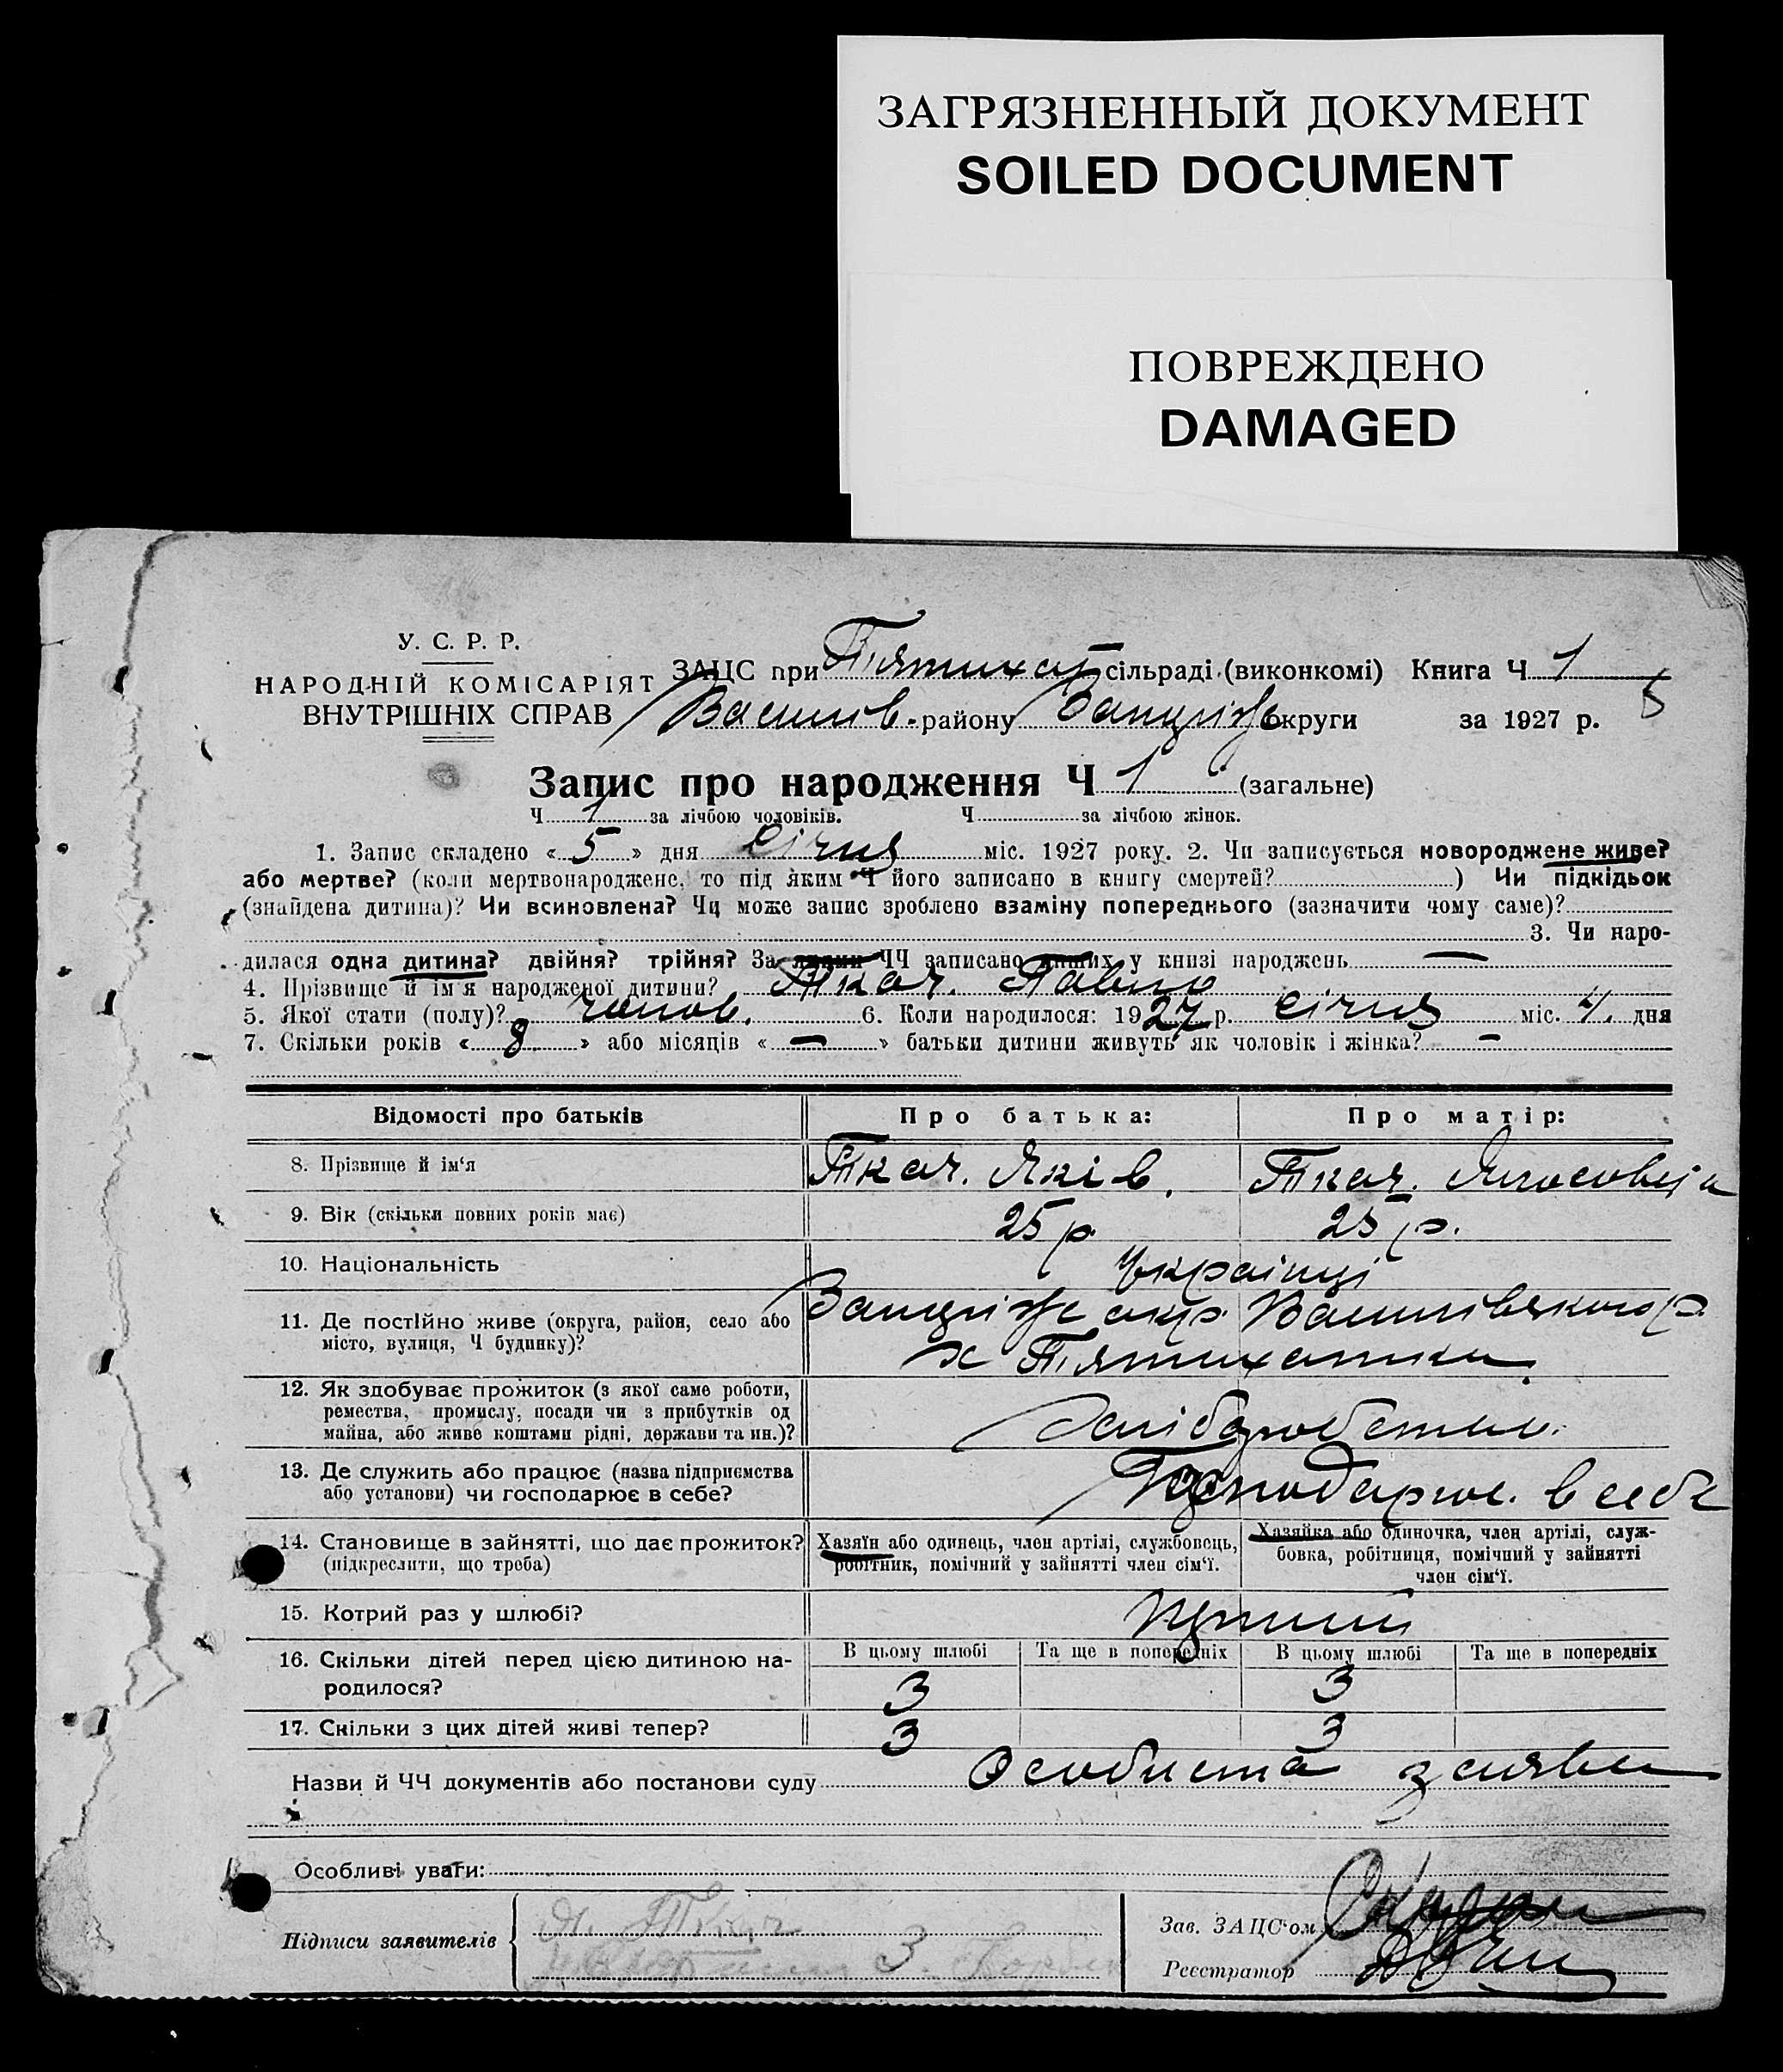 ЗАГРЯЗНЕННЫЙ ДОКУМЕНТ
SOILED DOCUMENT
ПОВРЕЖДЕНО
DAMAGED
У. С. Р. Р.
НАРОДНІЙ КОМІСАРІЯТ
ВНУТРІШНІХ СПРАВ
ЗАЦС при Пятихат сільраді (виконкомі) Книга Ч 1
5
Василів. району Запоріж округи за 1927 р.
Запис про народження Ч 1 (загальне)
Ч 1 за лічбою чоловіків. Ч за лічбою жінок.
1. Запис складено « 5 » дня січня міс. 1927 року. 2. Чи записується новороджене живе?
або мертве? (коли мертвонароджене, то під яким Ч його записано в книгу смертей? ) Чи підкідьок
(знайдена дитина)? Чи всиновлена? Чи може запис зроблено взаміну попереднього (зазначити чому саме)?
3. Чи наро-
дилася одна дитина? двійня? трійня? За якими ЧЧ записано инших у книзі народжень —
4. Прізвище й ім'я народженої дитини? Ткач. Павло
5. Якої стати (полу)? чолов. 6. Коли народилося: 1927 р. січня міс. 4. дня
7. Скільки років « 8 » або місяців « — » батьки дитини живуть як чоловік і жінка? —
Відомості про батьків Про батька: Про матір:
8. Прізвище й ім'я Ткач. Яків. Ткач.
9. Вік (скільки повних років має) 25 р. 25 р.
10. Національність Українці
11. Де постійно живе (округа, район, село або Запоріж окр. Василівського р.
місто, вулиця, Ч будинку)? х Пятихатки.
12. Як здобуває прожиток (з якої саме роботи,
ремества, промислу, посади чи з прибутків од
майна, або живе коштами рідні, держави та ин.)?
13. Де служить або працює (назва підприємства
або установи) чи господарює в себе? Господарює. в себе
14. Становище в зайнятті, що дає прожиток? Хазяїн або одинець, член артілі, службовець, Хазяйка або одиночка, член артілі, служ-
(підкреслити, що треба) робітник, помічний у зайнятті член сім'ї. бовка, робітниця, помічний у зайнятті
член сім'ї.
15. Котрий раз у шлюбі? перший
16. Скільки дітей перед цією дитиною на- В цьому шлюбі Та ще в попередніх В цьому шлюбі Та ще в попередніх
родилося? 3 3
17. Скільки з цих дітей живі тепер? 3 3
Назви й ЧЧ документів або постанови суду Особиста заява
Особливі уваги:
Підписи заявителів Я. Ткач
Зав. ЗАЦС'ом
Реєстратор